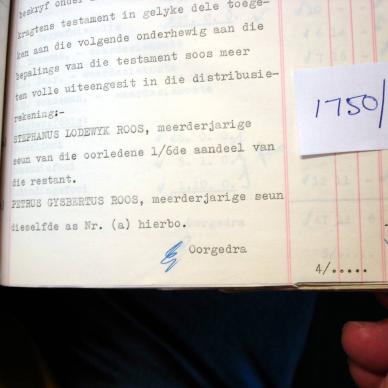 beskryf onder
kragtens testament in gelyke dele toege-
ken aan die volgende onderhewig aan die
bepalings van die testament soos meer
ten volle uiteengesit in die distribusie-
rekening:-
STEPHANUS LODEWYK ROOS, meerderjarige
seun van die oorledene 1/6de aandeel van
die restant.
PETRUS GYSBERTUS ROOS, meerderjarige seun
dieselfde as Nr. (a) hierbo.
Oorgedra
4/.....
1750/